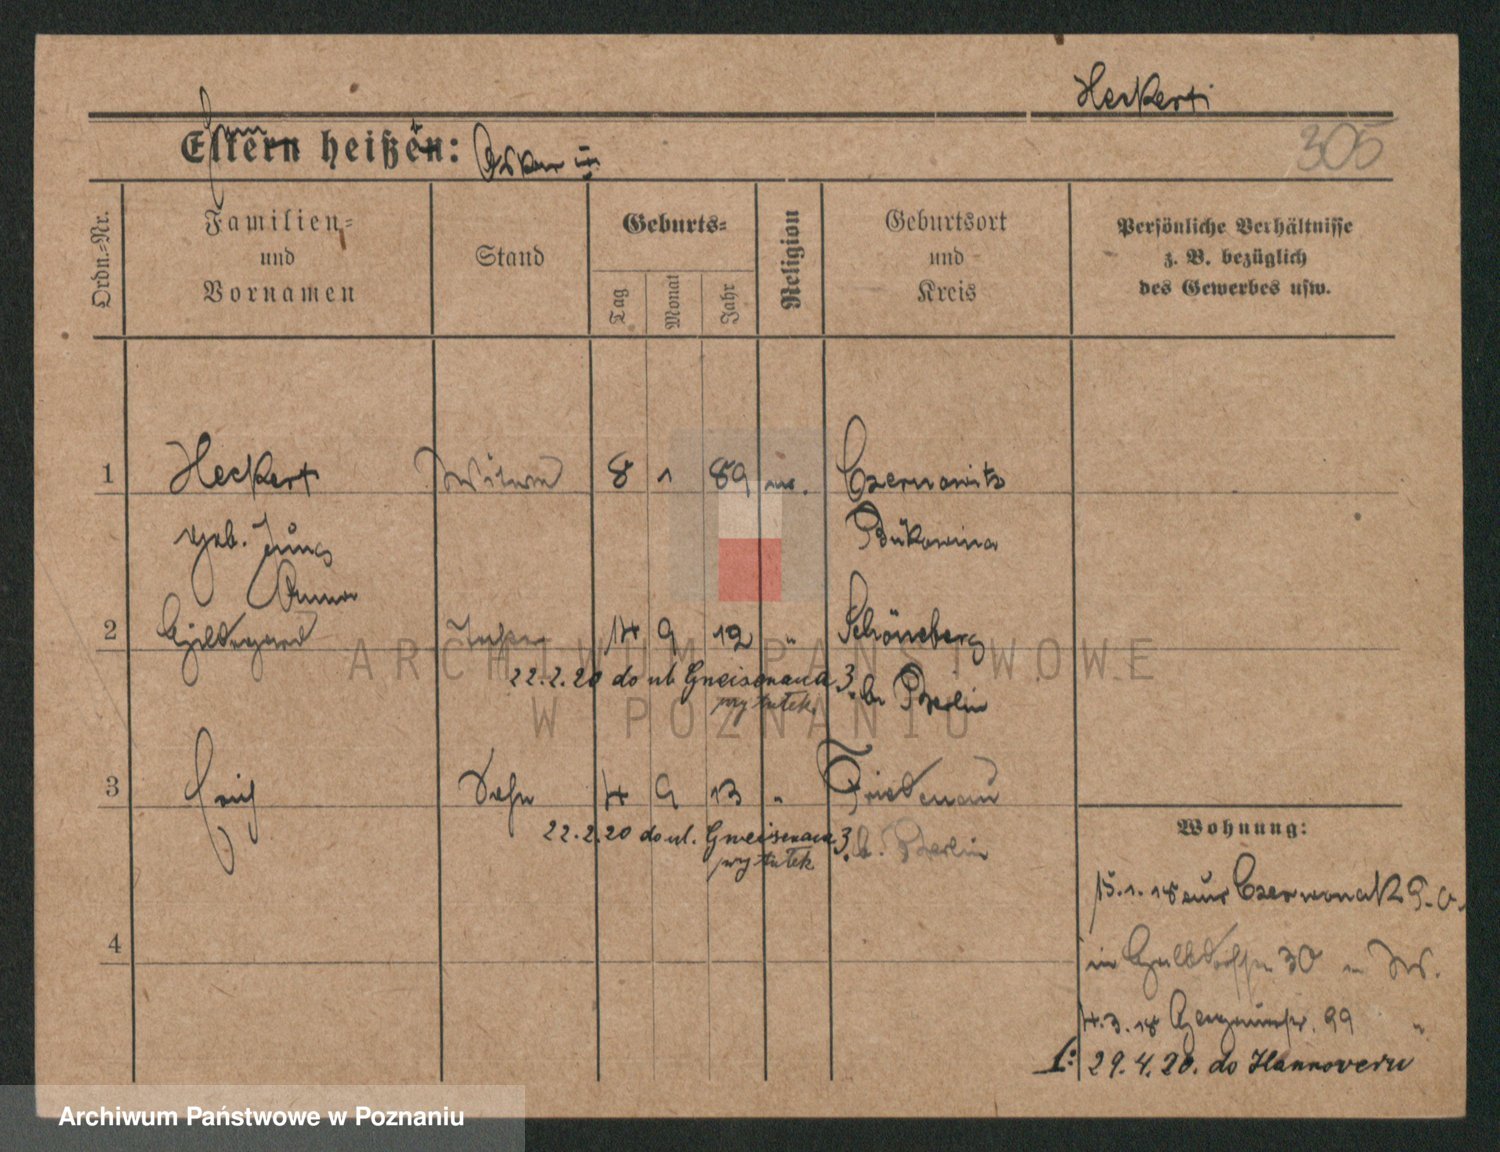 Heckert
305
Eltern heißen: Oskar
Ordn.-Nr.
Familien-
und
Vornamen
Stand
Geburts-
Tag
Monat
Jahr
Religion
Geburtsort
und
Kreis
Persönliche Verhältnisse
z. B. bezüglich
des Gewerbes usw.
1 Heckert Witwe 8 1 89 Czernowitz
geb. Jung Bukowina
Anna
2 Hildegard Tochter 14 9 12 " Schöneberg
22.2.20 do ul. Gneisenaua 3. b. Berlin
przytułek
3 Erich Sohn 4 9 13 " Friedenau
22.2.20 do ul. Gneisenaua 3. b. Berlin
przytułek
4
Wohnung:
15.1.18 aus Czerwonak P. O.
in Halbdorfstr 30
4.3.18 99 "
1: 29.4.20. do Hannoveru
ARCHIWUM PAŃSTWOWE
W POZNANIU
Archiwum Państwowe w Poznaniu